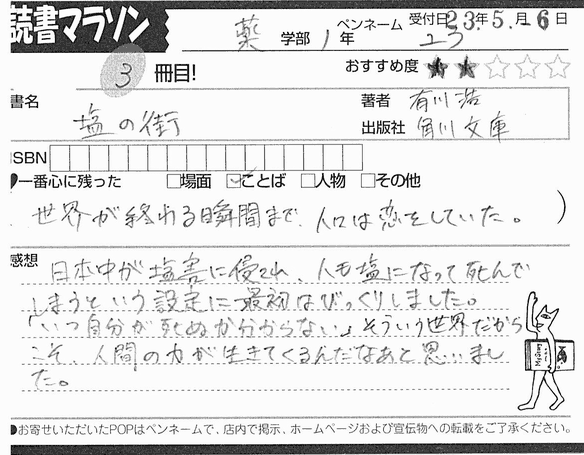 読書マラソン
薬 学部 1 年
ペンネーム ユう
受付日 23年5月6日
3 冊目!
おすすめ度 ★★☆☆☆
書名 塩の街
著者 有川浩
出版社 角川文庫
ISBN
一番心に残った □場面 ☑ことば □人物 □その他
世界が終わる瞬間まで、人々は恋をしていた。 )
感想 日本中が塩害に侵され、人も塩になって死んで
しまうという設定に最初はびっくりしました。
「いつ自分が死ぬか分からない」そういう世界だから
こそ、人間の力が生きてくるんだなあと思いまし
た。
●お寄せいただいたPOPはペンネームで、店内で掲示、ホームページおよび宣伝物への転載をご了承ください。